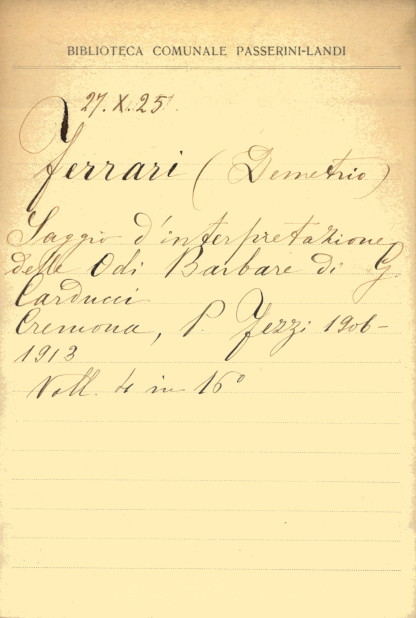 BIBLIOTECA COMUNALE PASSERINI-LANDI
27. X. 25.
Ferrari (Demetrio)
Saggio d'interpretazione
delle Odi Barbare di G.
Carducci
Cremona, P. Fezzi 1906-
1913
Voll. 4 in 16°